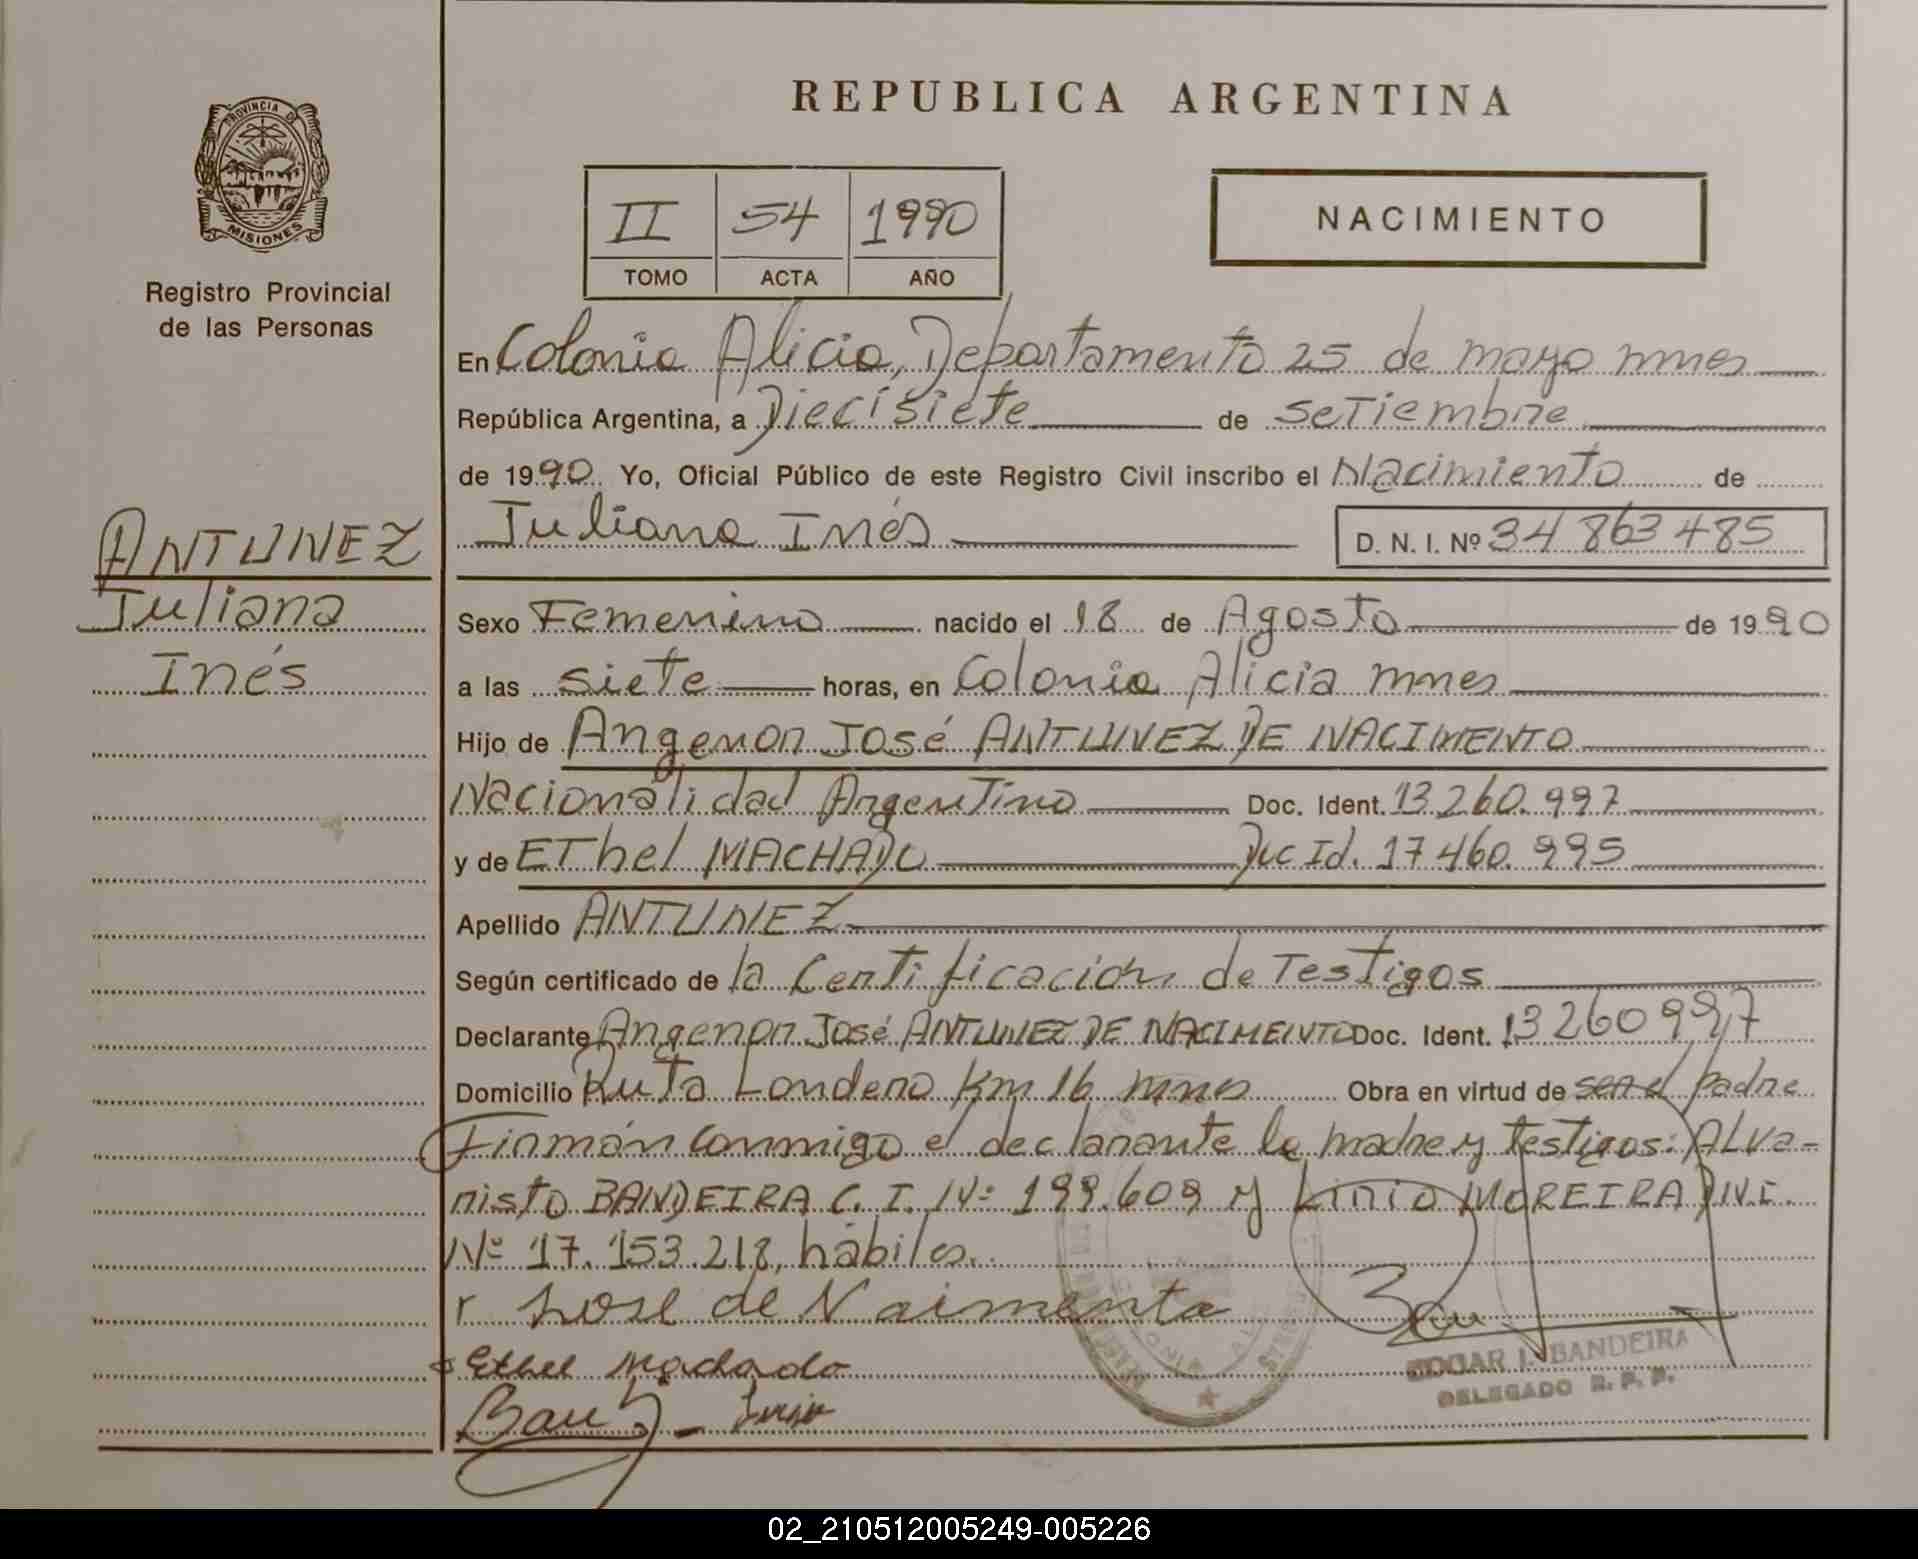 PROVINCIA DE
MISIONES
Registro Provincial
de las Personas
ANTUNEZ
Juliana
Inés
REPUBLICA ARGENTINA
II 54 1990
TOMO ACTA AÑO
NACIMIENTO
En Colonia Alicia, Departamento 25 de mayo mnes
República Argentina, a Diecisiete de Setiembre
de 1990 Yo, Oficial Público de este Registro Civil inscribo el Nacimiento de
Juliana Inés D. N. I. Nº 34 863 485
Sexo Femenino nacido el 18 de Agosto de 1990
a las siete horas, en Colonia Alicia mnes
Hijo de Angenor José ANTUNEZ DE NACIMENTO
Nacionalidad Argentino Doc. Ident. 13.260.997
y de EThel MACHADO Doc Id. 17460.995
Apellido ANTUNEZ
Según certificado de la Certificación de Testigos
Declarante Angenor José ANTUNEZ DE NACIMENTO Doc. Ident. 13260997
Domicilio Ruta Londero Km 16 mnes Obra en virtud de ser el Padre
Firmán conmigo el declarante la madre y testigos: ALva-
risto BANDEIRA C. I. Nº 199.609 y Linio MOREIRA D.N.I.
Nº 17.153.218, hábiles.
Jose de Naimenta
Ethel Machado
EDGAR L. BANDEIRA
DELEGADO R. P. P.
02_210512005249-005226